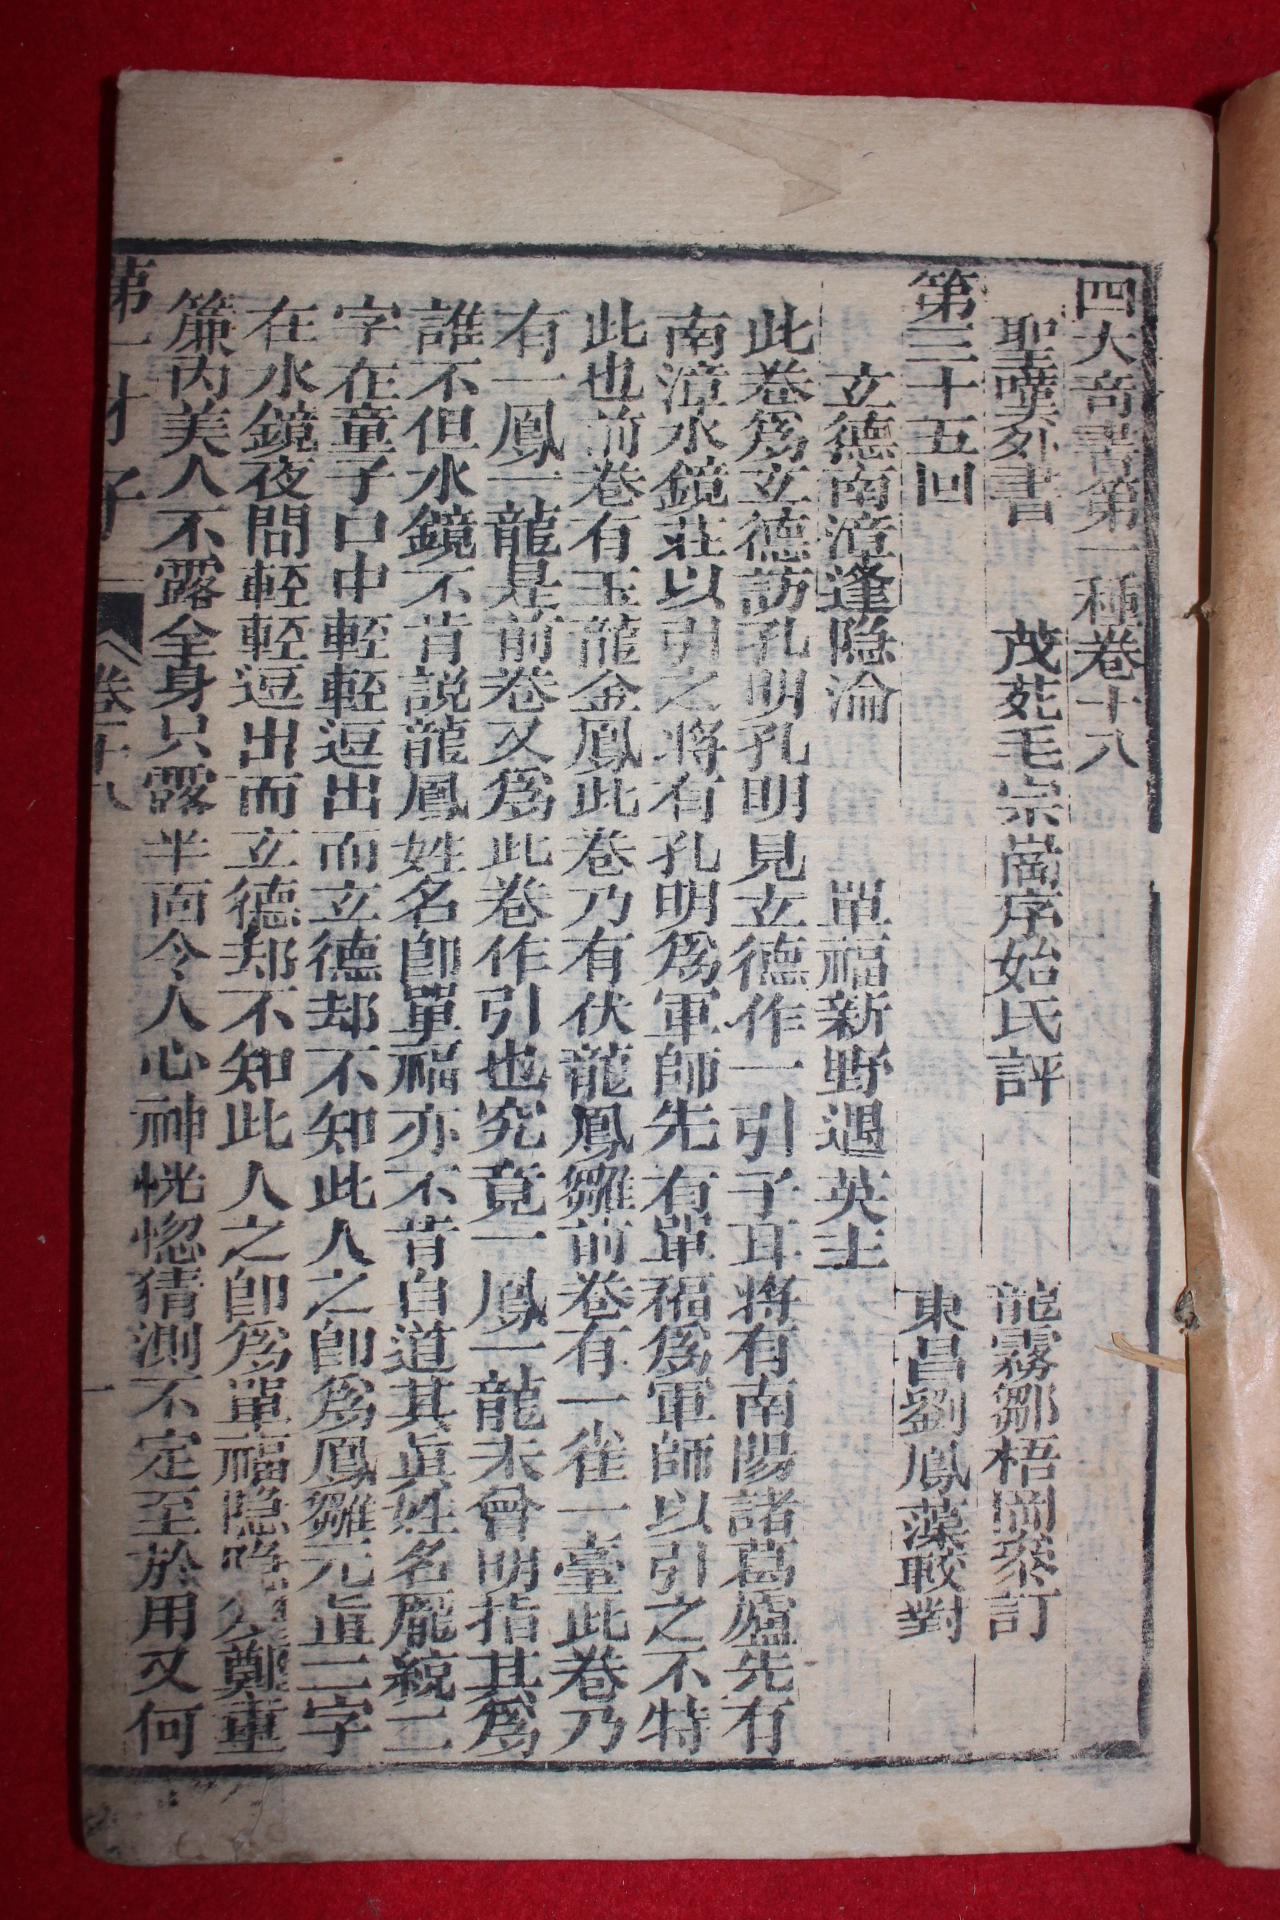 四大奇書第一種卷十八
聖嘆外書 茂苑毛宗崗序始氏評 龍霧鄒梧岡叅訂
第三十五回 東昌劉鳳藻較對
玄德南漳逢隐淪 單福新野遇英主
此卷爲玄德訪孔明孔明見玄德作一引子耳將有南陽諸葛廬先有
南漳水鏡莊以引之將有孔明爲軍師先有單福爲軍師以引之不特
此也前卷有玉龍金鳳此卷乃有伏龍鳳雛前卷有一雀一臺此卷乃
有一鳳一龍是前卷又爲此卷作引也究竟一鳳一龍未曾明指其爲
誰不但水鏡不肯説龍鳳姓名卽單福亦不肯自道其眞姓名龐統二
字在童子口中輕輕逗出而玄德却不知此人之卽爲鳳雛元直二字
在水鏡夜間輕輕逗出而玄德却不知此人之卽爲單福隐隐鄭重
簾内美人不露全身只露半面令人心神恍惚猜測不定至於用又何
第一才子 卷十八 一